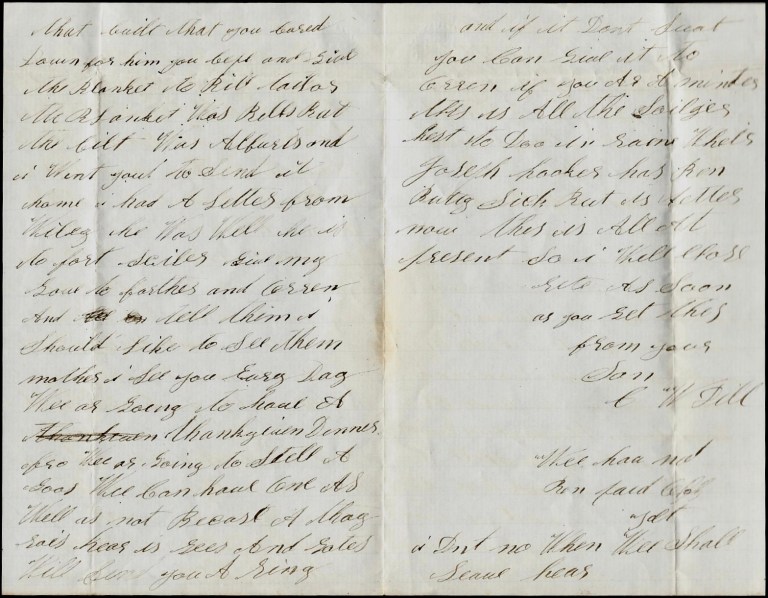 that quilt that you Cared
Down for him you Cepe and Give
the Blanket to
the Blanket Was Rills But
the Cilt Was Alfurds and
i Went you to Send it
home i had A Letter from
Wiley he Was Well he is
to fort Sciler Give my
Love to farther and Orren
And tell them i
Should Like to See them
mother i See you Evry Day
Wee ar Going to have A
Thankgiven Dinner
fro Wee ar Going to Still A
Goos Wee Can have One As
Well as not Becase A thay
hear is Gees And
Will Send you A Ring
and if it Dont Suat
you Can Give it to
Orren if you Ar A minter
this is All the
hest to Doo in
Joseph hooker has Ben
Sick But is Better
now this is All At
present So i Will Close
Rite As Soon
as you Get this
from your
Son
C W Till
Wee hav not
Ben paid Off
yet
i Dnt no When Wee Shall
Leave hear